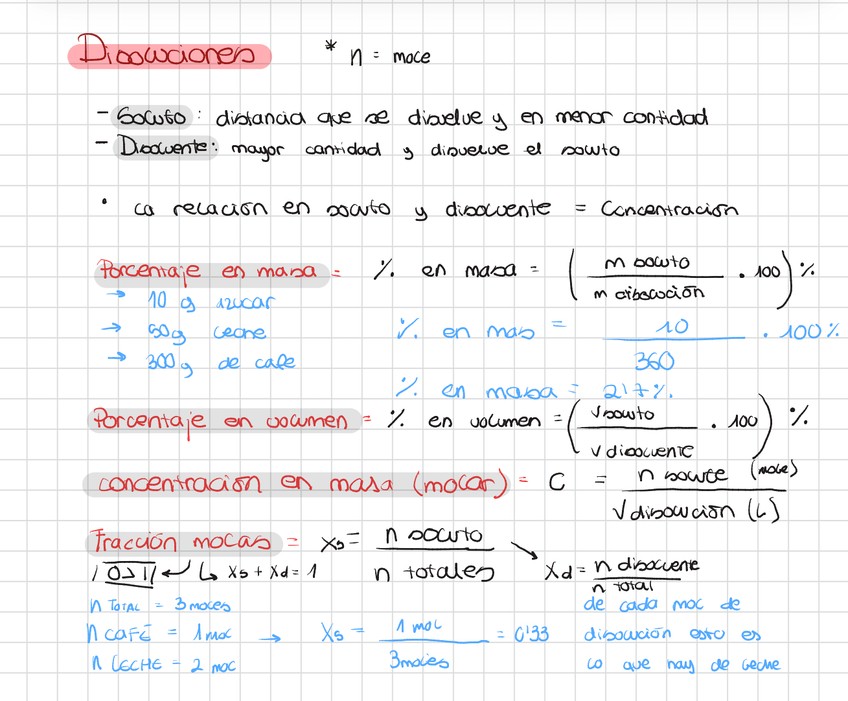 Disoluciones * n = moce
- Soluto : distancia que se disuelve y en menor contidad
- Disolvente : mayor cantidad y disuelve el soluto
· la relación en soluto y disolvente = Concentración
Porcentaje en masa = % en masa = ( m soluto / m disolución · 100 ) %
→ 10 g azucar
→ 50g leche % en mas = 10 / 360 · 100%
→ 300g de cafe
% en masa = 2'7%.
Porcentaje en volumen = % en volumen = ( V soluto / V disolvente · 100 ) %
concentración en masa (molar) = C = n solute (moles) / V disolución (L)
Fracción molas = Xs = n soluto / n totales → Xd = n disolvente / n total
/ 0 > 1 / ↵ ↳ Xs + Xd = 1
n TOTAL = 3 moles
n CAFÉ = 1 mol → Xs = 1 mol / 3 moles = 0'33
n LECHE = 2 mol
de cada mol de
disolución esto es
lo que hay de leche